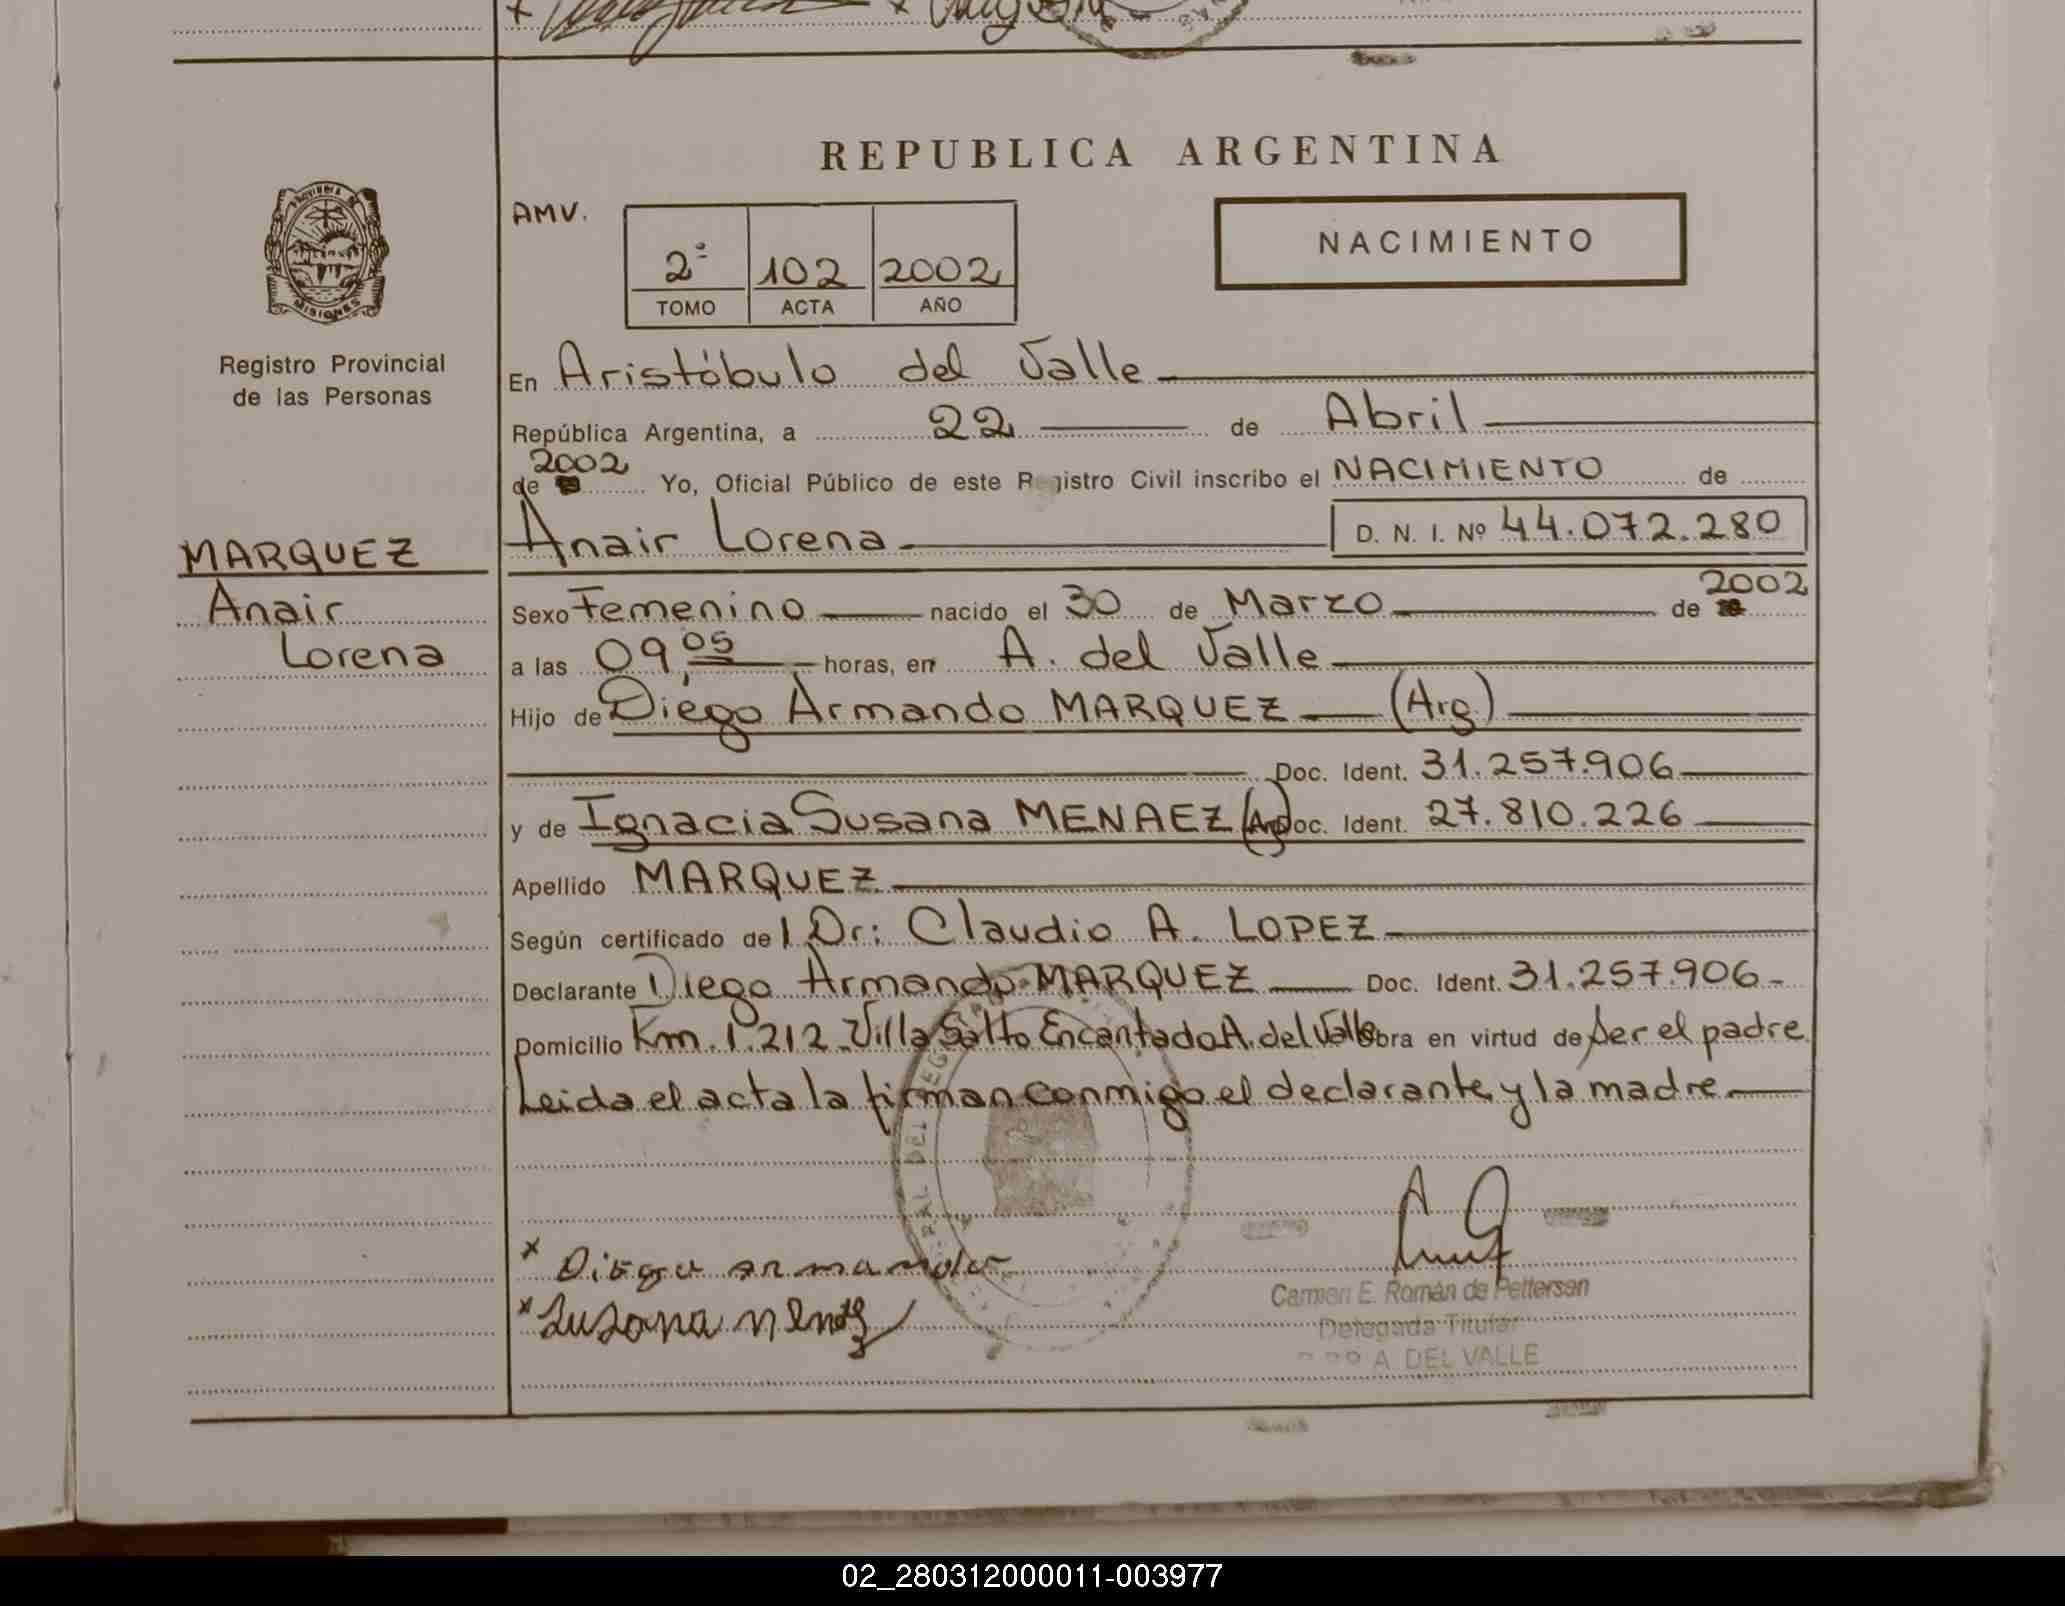 REPUBLICA ARGENTINA
AMV.
2º 102 2002
TOMO ACTA AÑO
NACIMIENTO
PROVINCIA DE
MISIONES
Registro Provincial
de las Personas
En Aristóbulo del Valle
República Argentina, a 22 de Abril
2002
de Yo, Oficial Público de este Registro Civil inscribo el NACIMIENTO de
Anair Lorena D. N. I. Nº 44.072.280
MARQUEZ
Anair
Lorena
2002
Sexo Femenino nacido el 30 de Marzo de
a las 09,05 horas, en A. del Valle
Hijo de Diego Armando MARQUEZ (Arg.)
Doc. Ident. 31.257.906
y de Ignacia Susana MENAEZ (Arg) Doc. Ident. 27.810.226
Apellido MARQUEZ
Según certificado del Dr: Claudio A. LOPEZ
Declarante Diego Armando MARQUEZ Doc. Ident. 31.257.906-
Domicilio Km. 1.212 - Villa Salto Encantado A. del Valle obra en virtud de ser el padre
Leida el acta la firman conmigo el declarante y la madre
x Diego armando
x Susana
Carmen E. Román de Pettersen
Delegada Titular
A. DEL VALLE
02_280312000011-003977